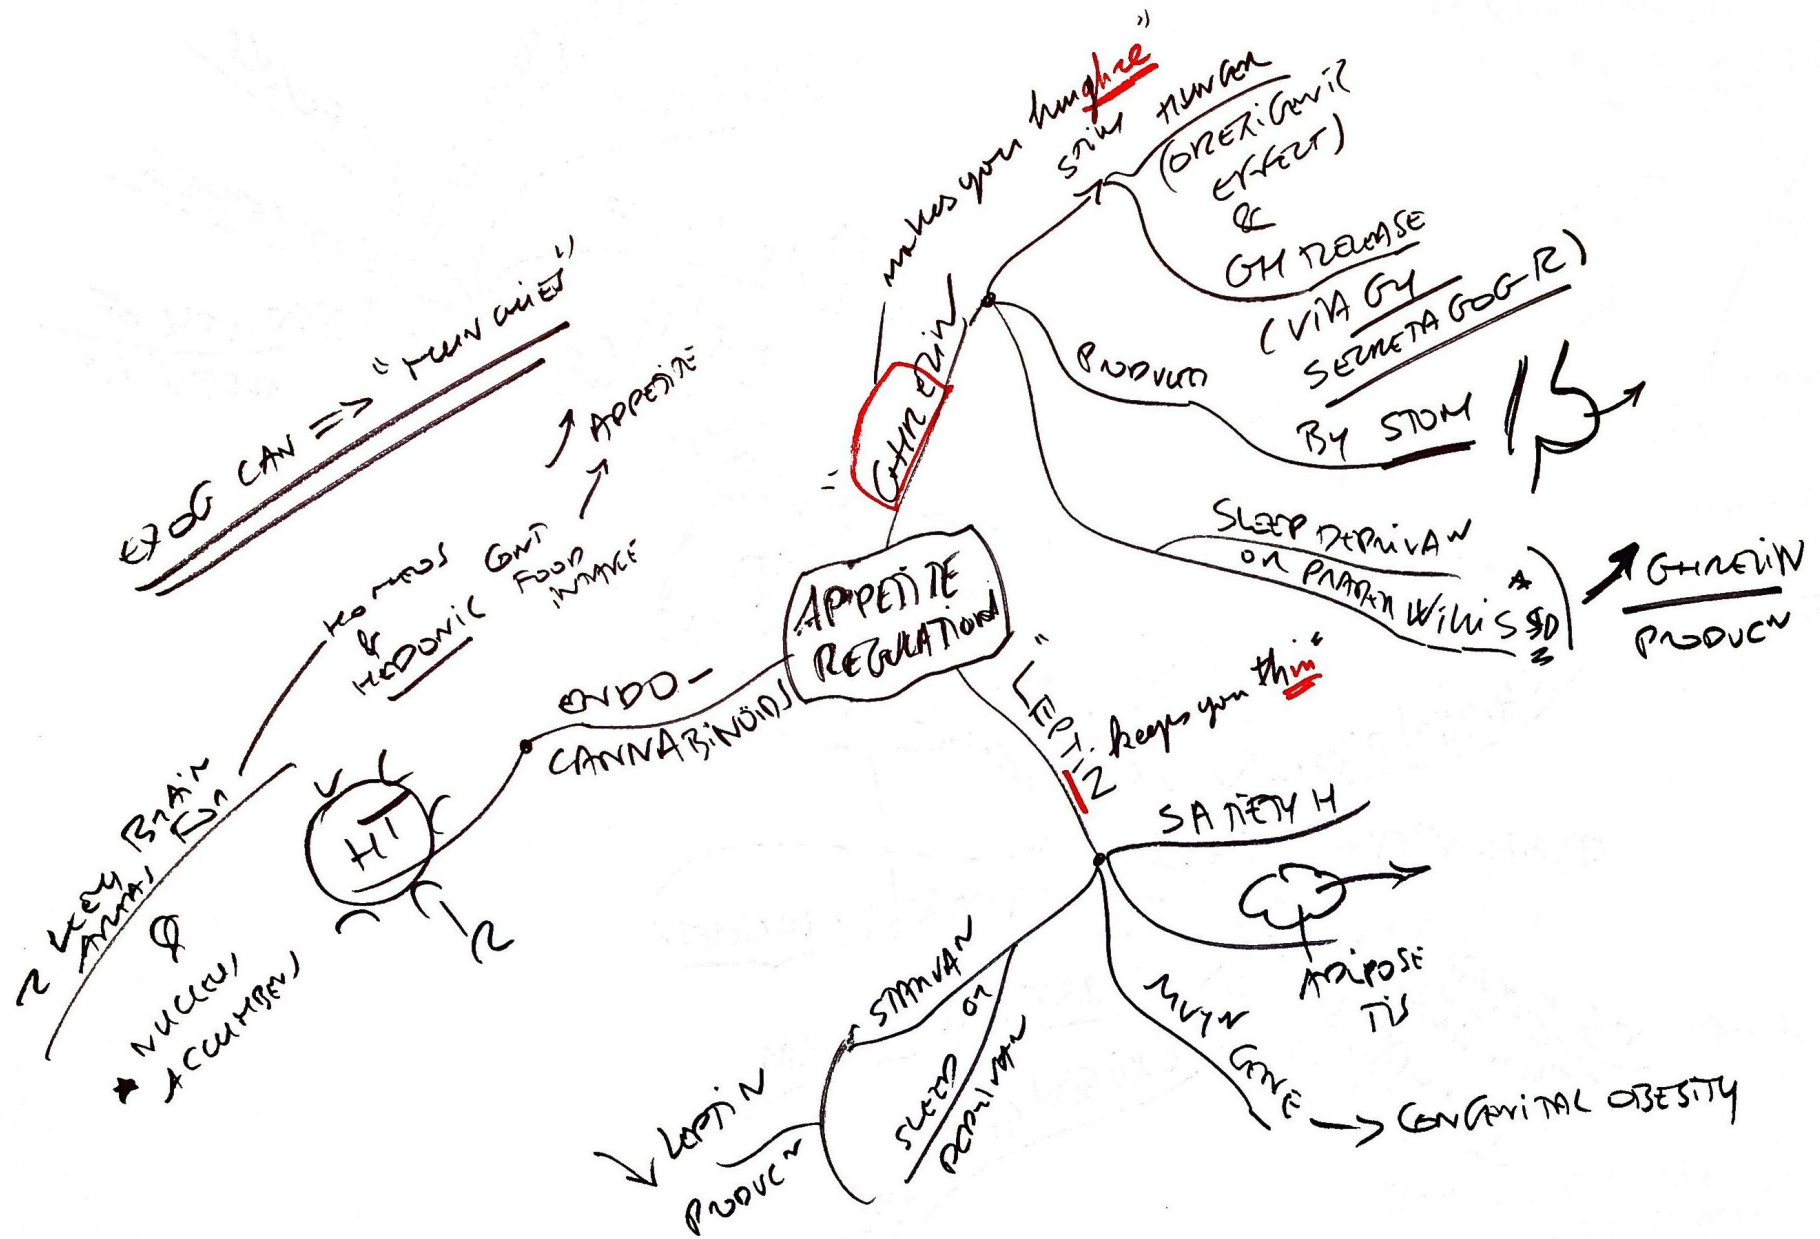 APPETITE
REGULATION
GHRELIN
"makes you hunghre"
STIM HUNGER
(OREXIGENIC
EFFECT)
&
GH RELEASE
(VIA GH
SECRETAGOG R)
PRODUCED
BY STOM
SLEEP DEPRIVAN
OR PRADER WILLIS SD
GHRELIN
PRODUCN
LEPTIN
"keeps you thin"
SATIETY H
ADIPOSE
TIS
MUTN
GENE
CONGENITAL OBESITY
STARVAN
OR
SLEEP
DEPRIVAN
LEPTIN
PRODUCN
ENDO-
CANNABINOIDS
HT
R
2 KEY BRAIN
AREAS FOR
HOMEOS
&
HEDONIC
CONT
FOOD
INTAKE
APPETITE
NUCLEUS
ACCUMBENS
EXOG CAN => "MUNCHIES"